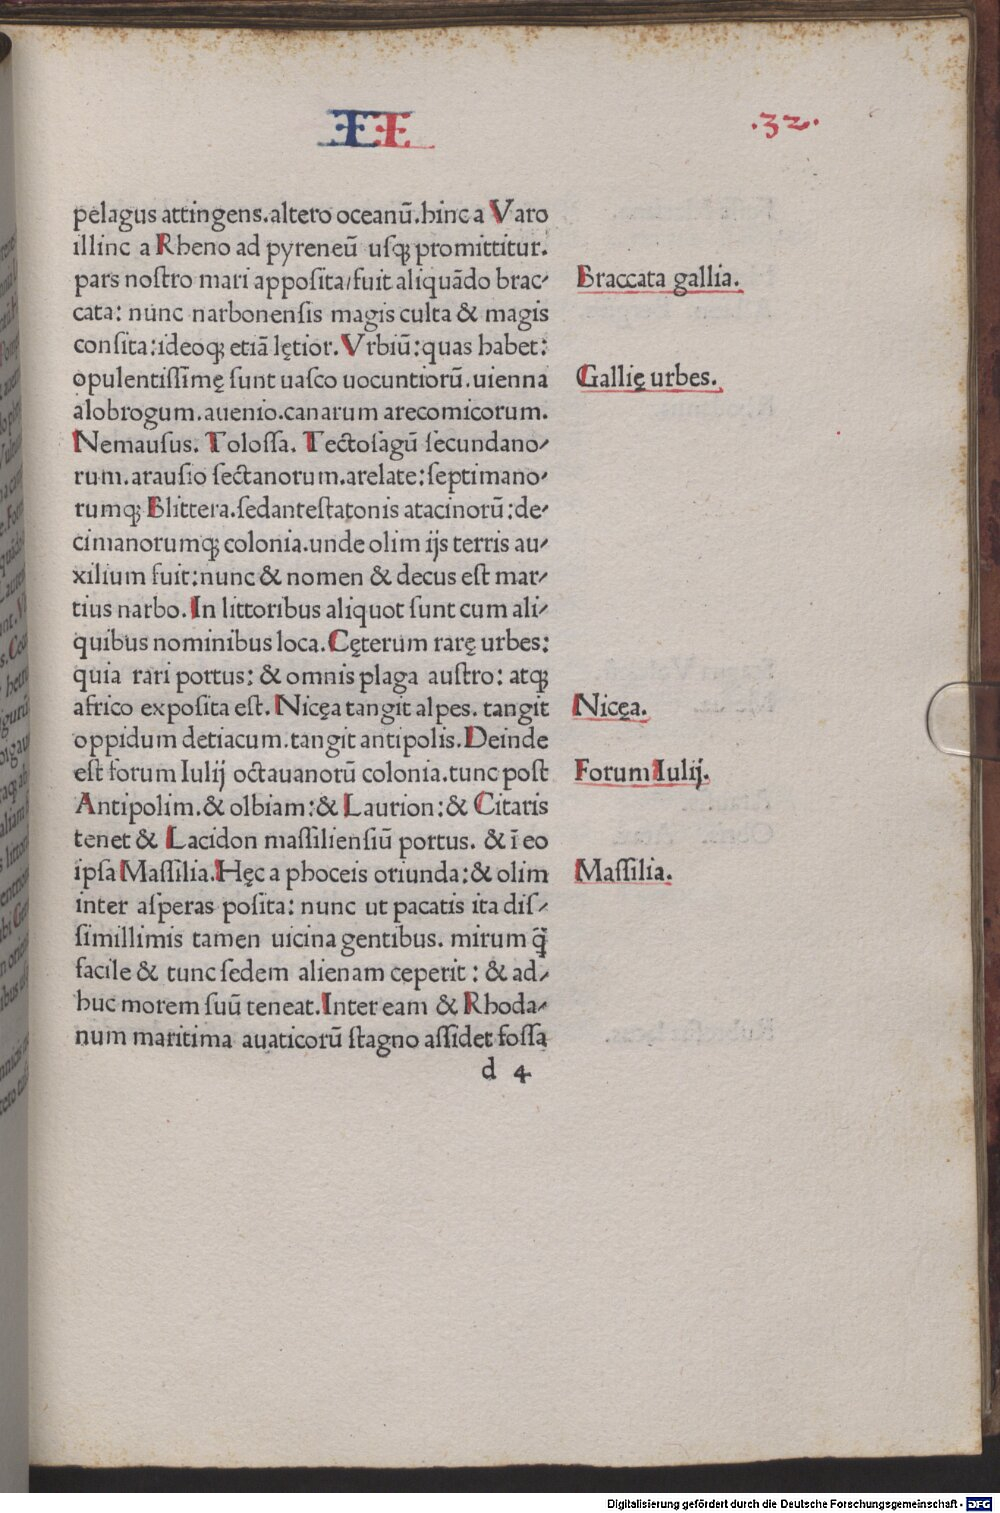 II
.32.
pelagus attingens.altero oceanū.hinc a Varo
illinc a Rheno ad pyreneū uſqꝫ promittitur.
pars noſtro mari appoſita/fuit aliquādo brac⸗
cata: nunc narbonenſis magis culta & magis
conſita:ideoqꝫ etiā lętior.Vrbiū:quas habet:
opulentiſſimę ſunt uaſco uocuntiorū.uienna
alobrogum.auenio.canarum arecomicorum.
Nemauſus. Toloſſa. Tectoſagū ſecundano⸗
rum.arauſio ſectanorum.arelate:ſeptimano⸗
rumqꝫ Blittera.ſedanteſtatonis atacinorū:de⸗
cimanorumqꝫ colonia.unde olim ijs terris au⸗
xilium fuit:nunc & nomen & decus eſt mar⸗
tius narbo.In littoribus aliquot ſunt cum ali⸗
quibus nominibus loca.Cęterum rarę urbes:
quia rari portus: & omnis plaga auſtro: atqꝫ
africo expoſita eſt.Nicęa tangit alpes. tangit
oppidum detiacum.tangit antipolis.Deinde
eſt forum Iulij octauanorū colonia.tunc poſt
Antipolim.& olbiam:& Laurion:& Citaris
tenet & Lacidon maſſilienſiū portus. & ī eo
ipſa Maſſilia.Hęc a phoceis oriunda:& olim
inter aſperas poſita: nunc ut pacatis ita diſ⸗
ſimillimis tamen uicina gentibus. mirum q̄
facile & tunc ſedem alienam ceperit : & ad⸗
huc morem ſuū teneat.Inter eam & Rhoda⸗
num maritima auaticorū ſtagno aſſidet foſſa
d 4
Braccata gallia.
Gallię urbes.
Nicęa.
Forum Iulij.
Maſſilia.
Digitalisierung gefördert durch die Deutsche Forschungsgemeinschaft - DFG